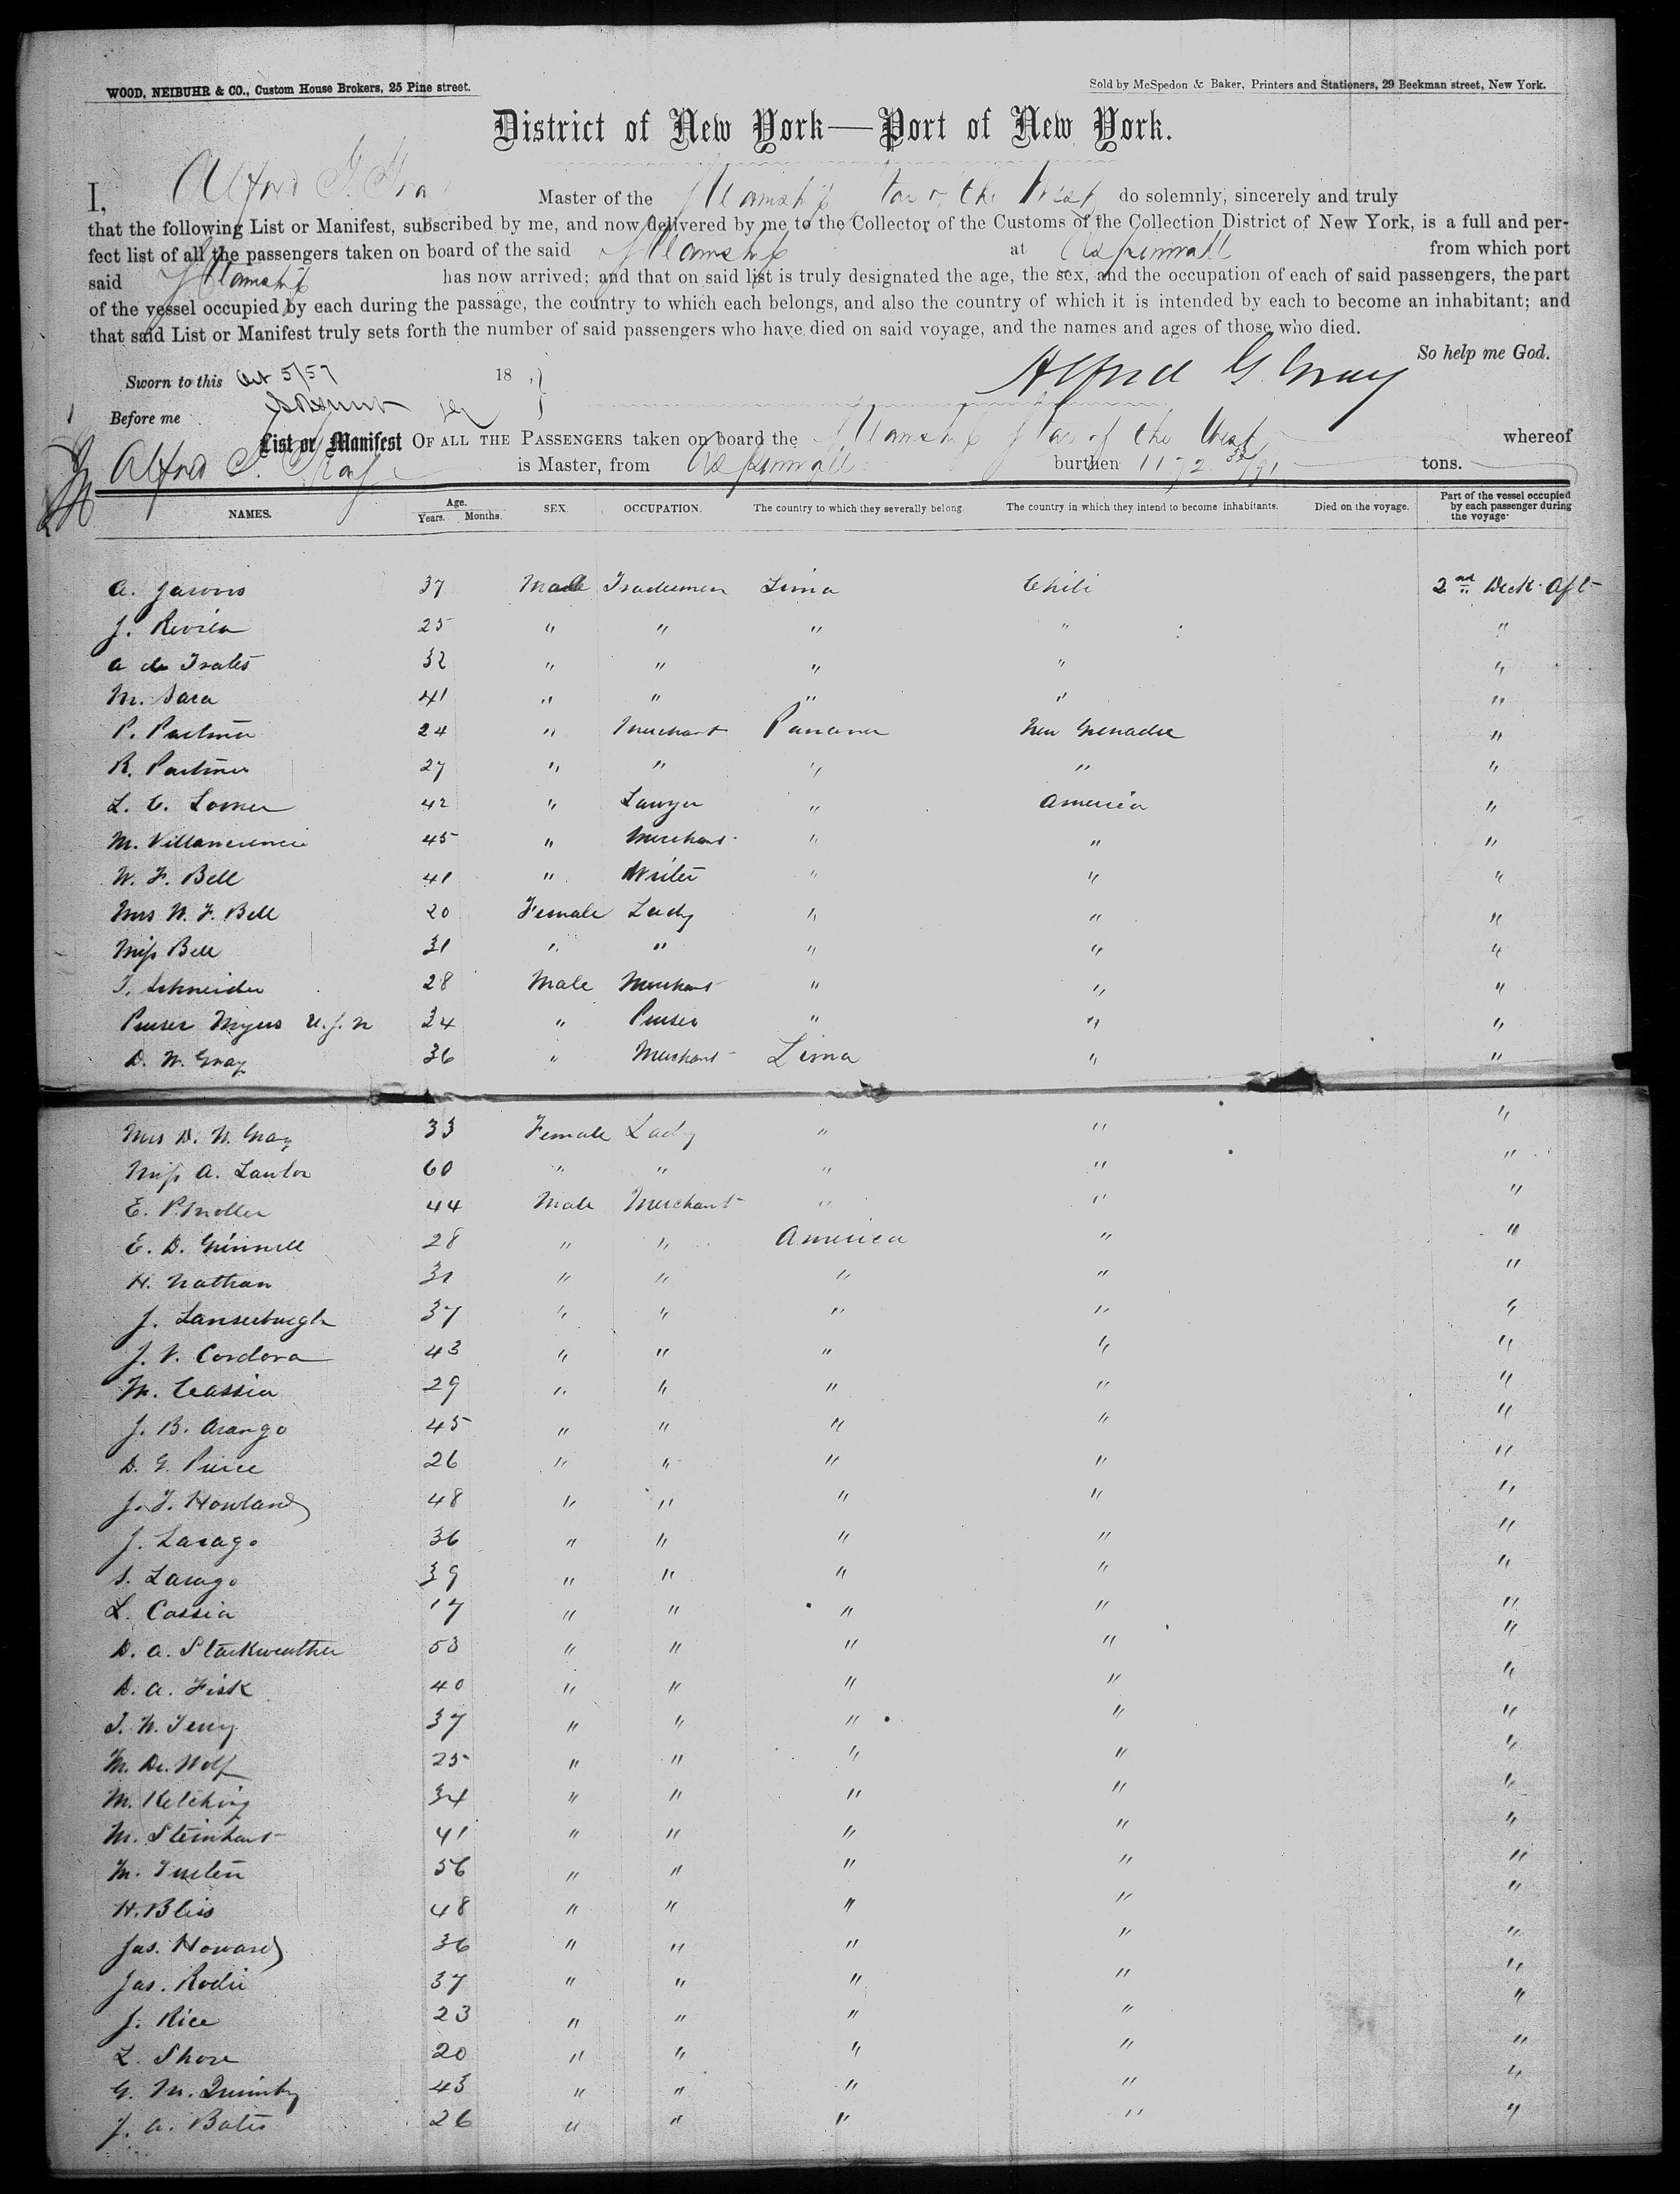 WOOD, NEIBUHR & CO., Custom House Brokers, 25 Pine street.
Sold by McSpedon & Baker, Printers and Stationers, 29 Beekman street, New York.
District of New York—Port of New York.
I, Alfred G. Gray Master of the Steamship Star of the West do solemnly, sincerely and truly
that the following List or Manifest, subscribed by me, and now delivered by me to the Collector of the Customs of the Collection District of New York, is a full and per-
fect list of all the passengers taken on board of the said Steamship at Aspinwall from which port
said Steamship has now arrived; and that on said list is truly designated the age, the sex, and the occupation of each of said passengers, the part
of the vessel occupied by each during the passage, the country to which each belongs, and also the country of which it is intended by each to become an inhabitant; and
that said List or Manifest truly sets forth the number of said passengers who have died on said voyage, and the names and ages of those who died.
So help me God.
Sworn to this Oct 5/57 18 Alfred G. Gray
Before me
List or Manifest OF ALL THE PASSENGERS taken on board the Steamship Star of the West whereof
Alfred G. Gray is Master, from Aspinwall burthen 1172 tons.
NAMES. Age. Years. Months. SEX. OCCUPATION. The country to which they severally belong. The country in which they intend to become inhabitants. Died on the voyage. Part of the vessel occupied by each passenger during the voyage.
A. 37 Male Tradesmen Lima Chili 2nd Deck Aft
J. 25 " " " " "
A de Frates 32 " " " " "
M. Sara 41 " " " " "
P. 24 " Merchant Panama New Grenada "
R. 27 " " " " "
L. C. 42 " Lawyer " America "
M. 45 " Merchant " " "
W. F. Bell 41 " Writer " " "
Mrs W. F. Bell 20 Female Lady " " "
Miss Bell 31 " " " " "
T. Schneider 28 Male Merchant " " "
Purser Myers U.S.N 34 " Purser " " "
D. W. Gray 36 " Merchant Lima " "
Mrs D. W. Gray 33 Female Lady " " "
Miss A. Lawlor 60 " " " " "
E. P. Moller 44 Male Merchant " " "
E. D. Grinnell 28 " " America " "
H. Nathan 31 " " " " "
J. Lanserburgh 37 " " " " "
J. V. Cordova 43 " " " " "
M. Cassia 29 " " " " "
J. B. Arango 45 " " " " "
D. G. Pierce 26 " " " " "
J. T. Howland 48 " " " " "
J. Larago 36 " " " " "
S. Larago 39 " " " " "
L. Cassia 17 " " " " "
D. A. Starkweather 53 " " " " "
D. A. Fisk 40 " " " " "
T. W. Terry 37 " " " " "
M. De Wolf 25 " " " " "
M. Ketching 34 " " " " "
M. Steinhart 41 " " " " "
M. 56 " " " " "
H. Bliss 48 " " " " "
Jas. Howard 36 " " " " "
Jas. Rodie 37 " " " " "
J. Rice 23 " " " " "
L. Shore 20 " " " " "
G. M. Quimby 43 " " " " "
J. A. Bates 26 " " " " "